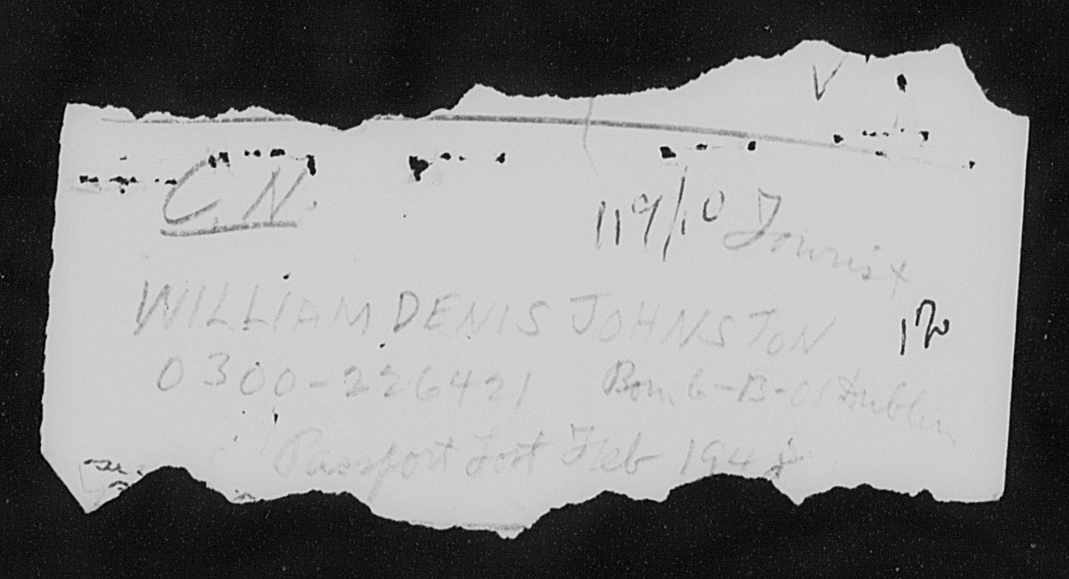 V
C.N.
119/10 Tourist
WILLIAM DENIS JOHNSTON
120
0300-226421 Born 6-B-01 Dublin
Passport Lost Feb 1948